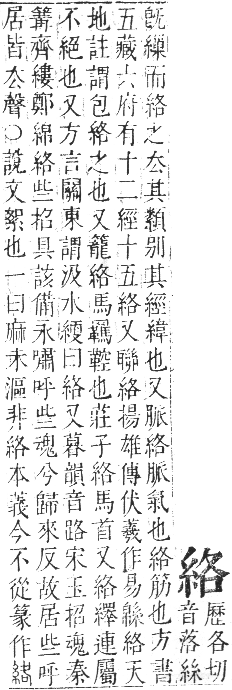 絡歷各切
音落絲
旣繅而絡之𠫤其纇別其經緯也又脈絡脈氣也絡筋也方書
五藏六府有十二經十五絡又聯絡揚雄傳伏羲作易緜絡天
地註謂包絡之也又籠絡馬羈鞚也莊子絡馬首又絡繹連屬
不絕也又方言關東謂汲水綆曰絡又暮韻音路宋玉招魂秦
篝齊縷鄭綿絡些招具該備永嘯呼些魂兮歸來反故居些呼
居皆𠫤聲○說文絮也一曰麻未漚非絡本義今不從篆作